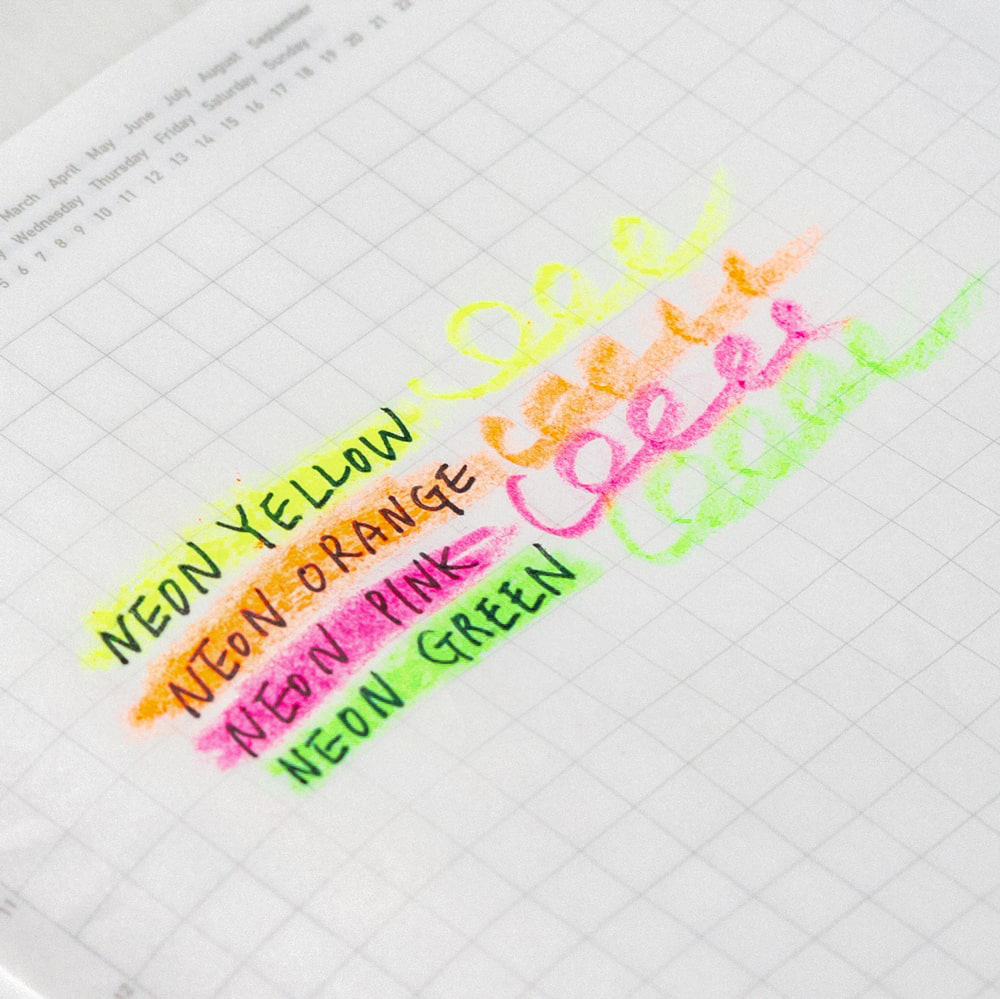 March April May June July August September
Wednesday Thursday Friday Saturday Sunday
5 6 7 8 9 10 11 12 13 14 15 16 17 18 19 20 21 22
NEON YELLOW
NEON ORANGE
NEON PINK
NEON GREEN
11
12